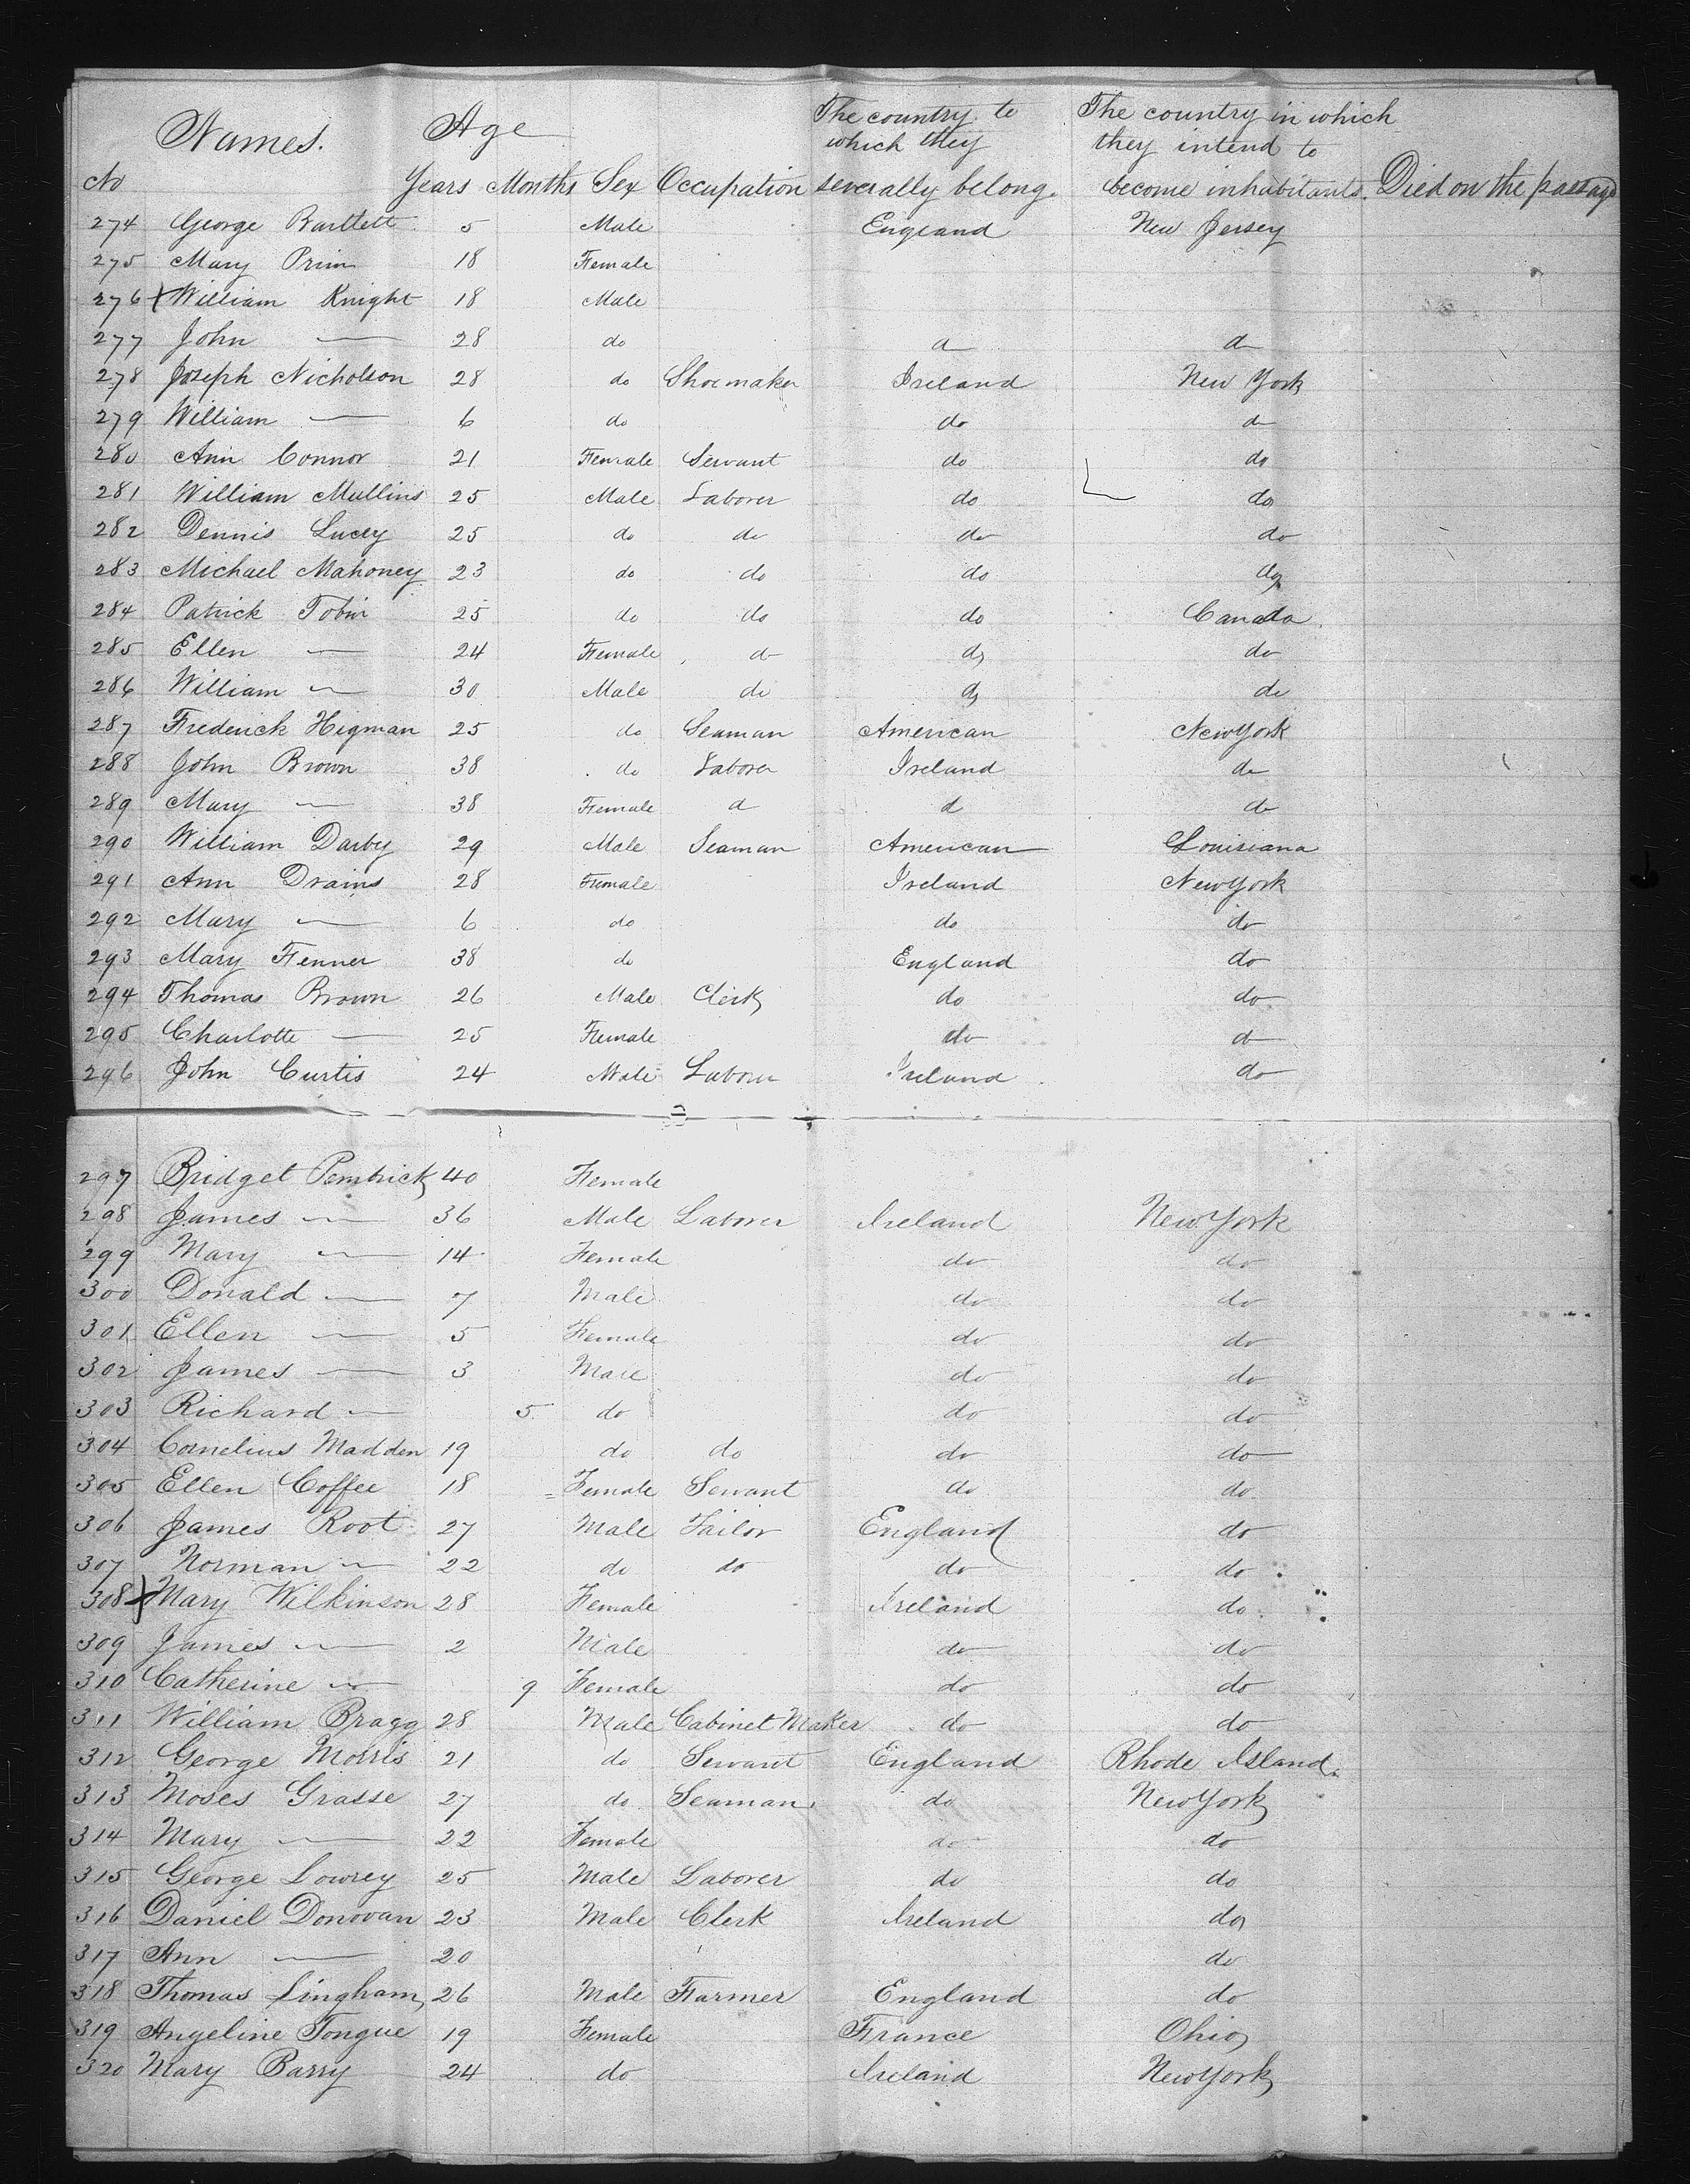 Names. Age The country to which they severally belong. The country in which they intend to become inhabitants. Died on the passage
No Years Months Sex Occupation
274 George Bartlett 5 Male England New Jersey
275 Mary Prim 18 Female
276 x William Knight 18 Male
277 John — 28 do d d
278 Joseph Nicholson 28 do Shoemaker Ireland New York
279 William — 6 do do do
280 Ann Connor 21 Female Servant do do
281 William Mullins 25 Male Laborer do do
282 Dennis Lucey 25 do do do do
283 Michael Mahoney 23 do do do do
284 Patrick Tobin 25 do do do Canada
285 Ellen — 24 Female do do do
286 William — 30 Male do do do
287 Frederick Higman 25 do Seaman American New York
288 John Brown 38 do Laborer Ireland do
289 Mary — 38 Female d d do
290 William Darby 29 Male Seaman American Louisiana
291 Ann Drains 28 Female Ireland New York
292 Mary — 6 do do do
293 Mary Fenner 38 do England do
294 Thomas Brown 26 Male Clerk do do
295 Charlotte — 25 Female do do
296 John Curtis 24 Male Laborer Ireland do
297 Bridget 40 Female
298 James — 36 Male Laborer Ireland New York
299 Mary — 14 Female do do
300 Donald — 7 Male do do
301 Ellen — 5 Female do do
302 James — 3 Male do do
303 Richard — 5 do do do
304 Cornelius Madden 19 do do do do
305 Ellen Coffee 18 Female Servant do do
306 James Root 27 Male Tailor England do
307 Norman — 22 do do do do
308 x Mary Wilkinson 28 Female Ireland do
309 James — 2 Male do do
310 Catherine — 9 Female do do
311 William Bragg 28 Male Cabinet Maker do do
312 George Morris 21 do Servant England Rhode Island
313 Moses Grasse 27 do Seaman do New York
314 Mary — 22 Female do do
315 George Lowrey 25 Male Laborer do do
316 Daniel Donovan 23 Male Clerk Ireland do
317 Ann — 20 do
318 Thomas Lingham 26 Male Farmer England do
319 Angeline Tongue 19 Female France Ohio
320 Mary Barry 24 do Ireland New York